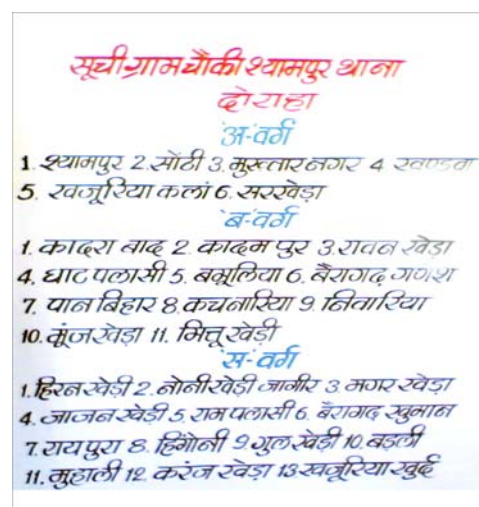 सूची ग्राम चौकी श्यामपुर थाना
दोराहा
'अ' वर्ग
1. श्यामपुर 2. सोंटी 3. मुख्तार नगर 4 खण्डवा
5. खजूरिया कलां 6. सरखेड़ा
'ब' वर्ग
1. कादरा बाद 2. कादम पुर 3. रावन खेड़ा
4. घाट पलासी 5. बमूलिया 6. बैरागढ़ गणेश
7. पान बिहार 8. कचनारिया 9. नितारिया
10. कूंज खेड़ा 11. मित्तू खेड़ी
'स' वर्ग
1. हिरन खेड़ी 2. नोनी खेड़ी जागीर 3 मगर खेड़ा
4. जाजन खेड़ी 5. राम पलासी 6. बैरागढ़ खुमान
7. रायपुरा 8. हिंगोनी 9. गुल खेड़ी 10. बड़ली
11. मुहाली 12. करंज खेड़ा 13 खजूरिया खुर्द